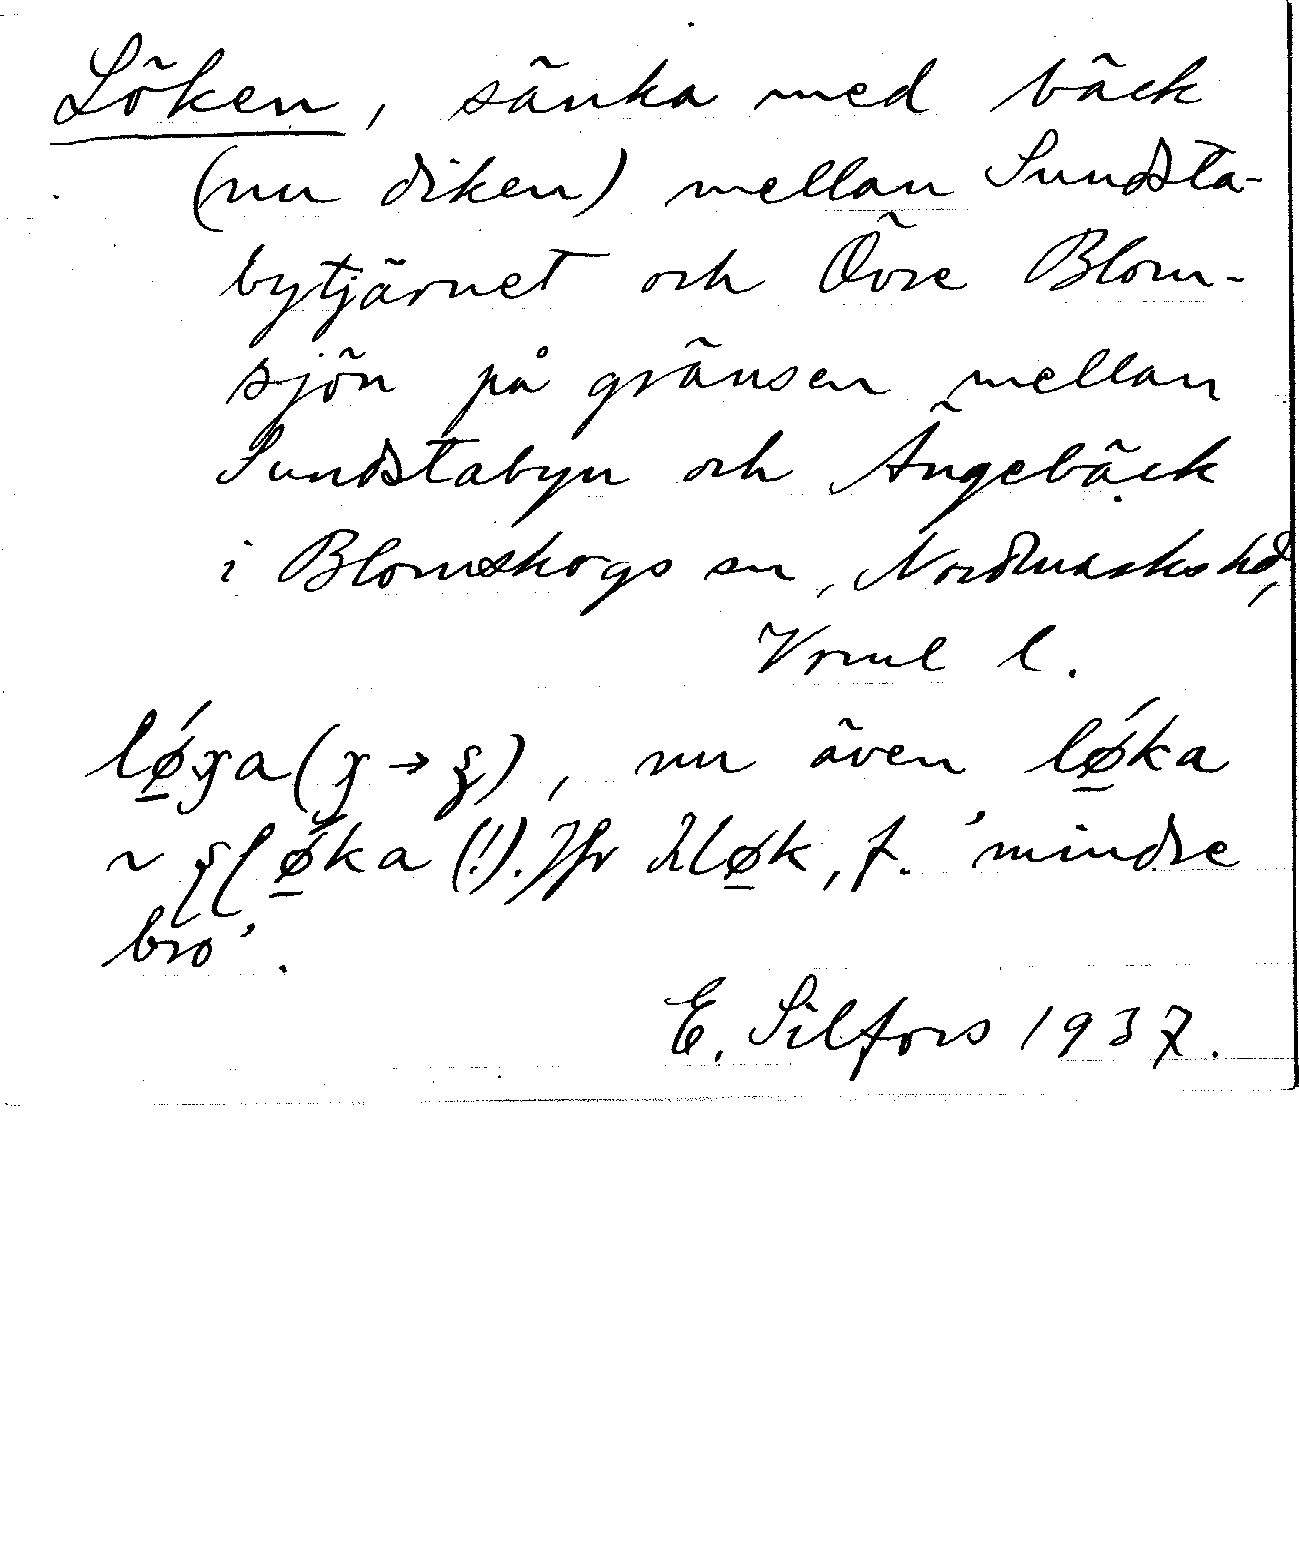 Löken, sänka med bäck
(nu diken) mellan Sundsta-
bytjärnet och Övre Blom-
sjön på gränsen mellan
Sundstabyn och Ängebäck
i Blomskogs sn, Nordmarks hd,
Vrml l.
nu även lǿ̲ka
(!). Jfr f. 'mindre
bro'.
E. Silfors 1937.